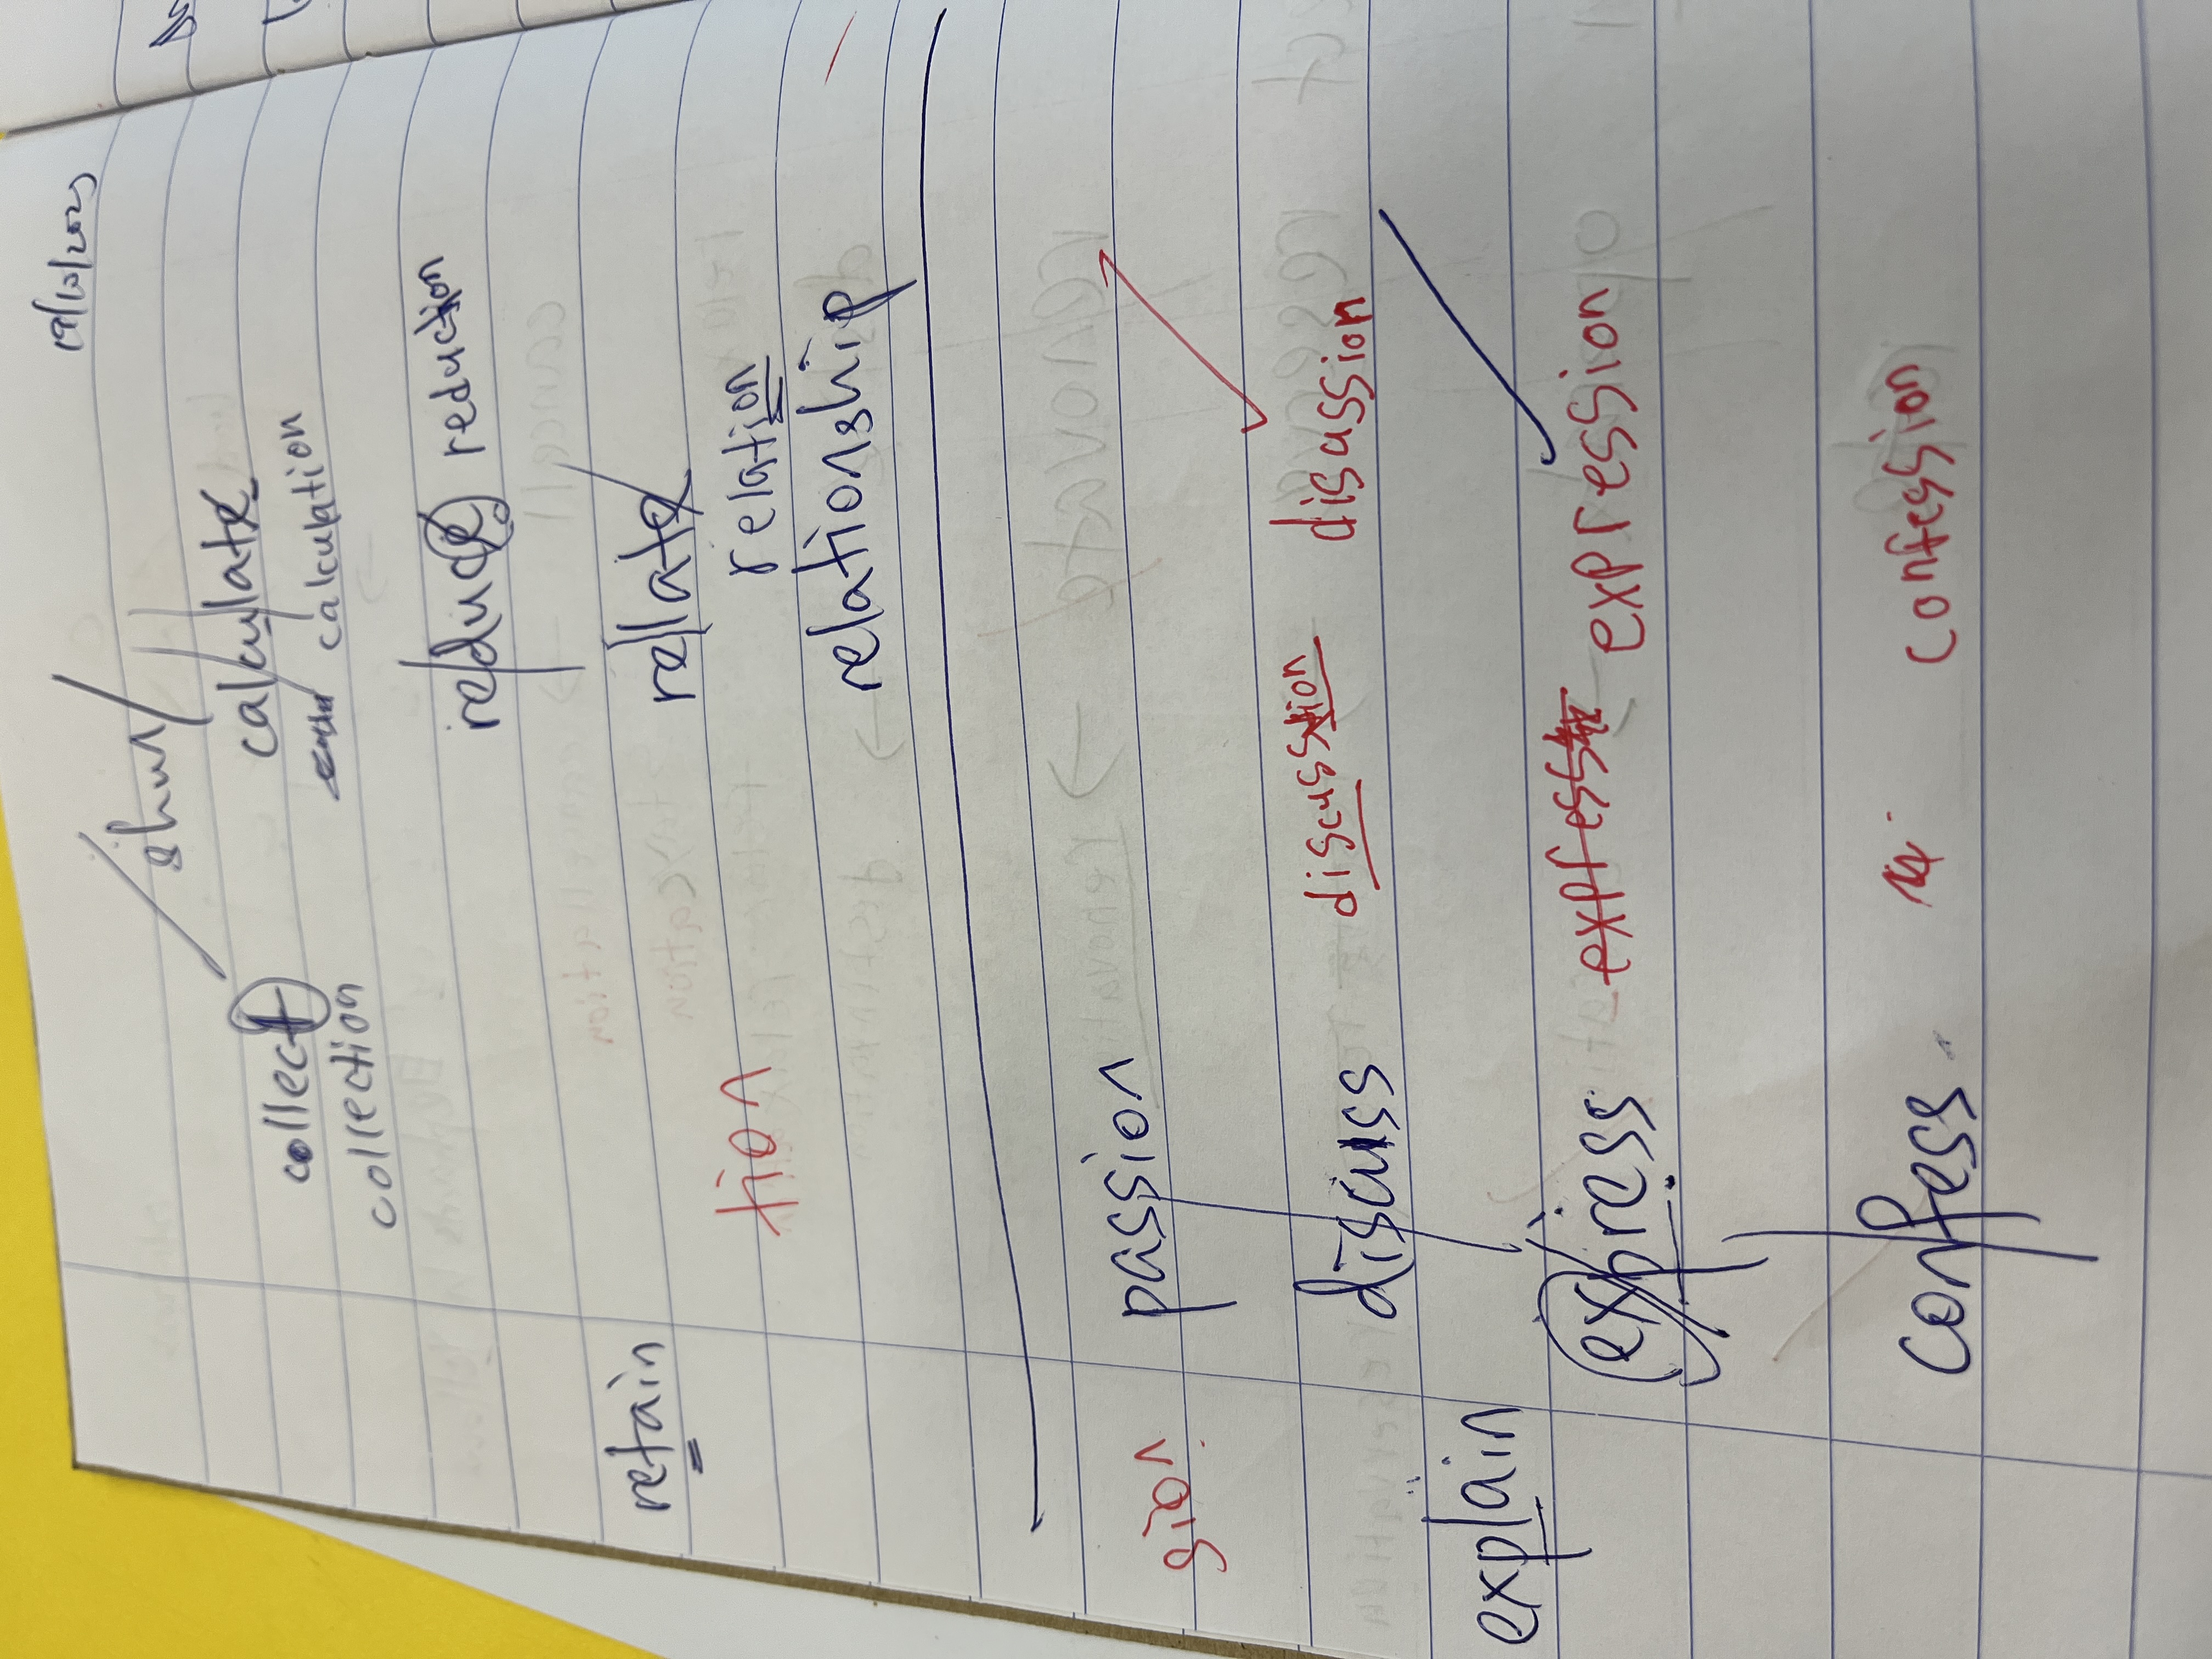 19/10/2023
shun
collect calculate
collection calculation
reduce reduction
retain relate
tion relation
relationship
sion passion
discuss discusstion disussion
explain
express expression
confess confession